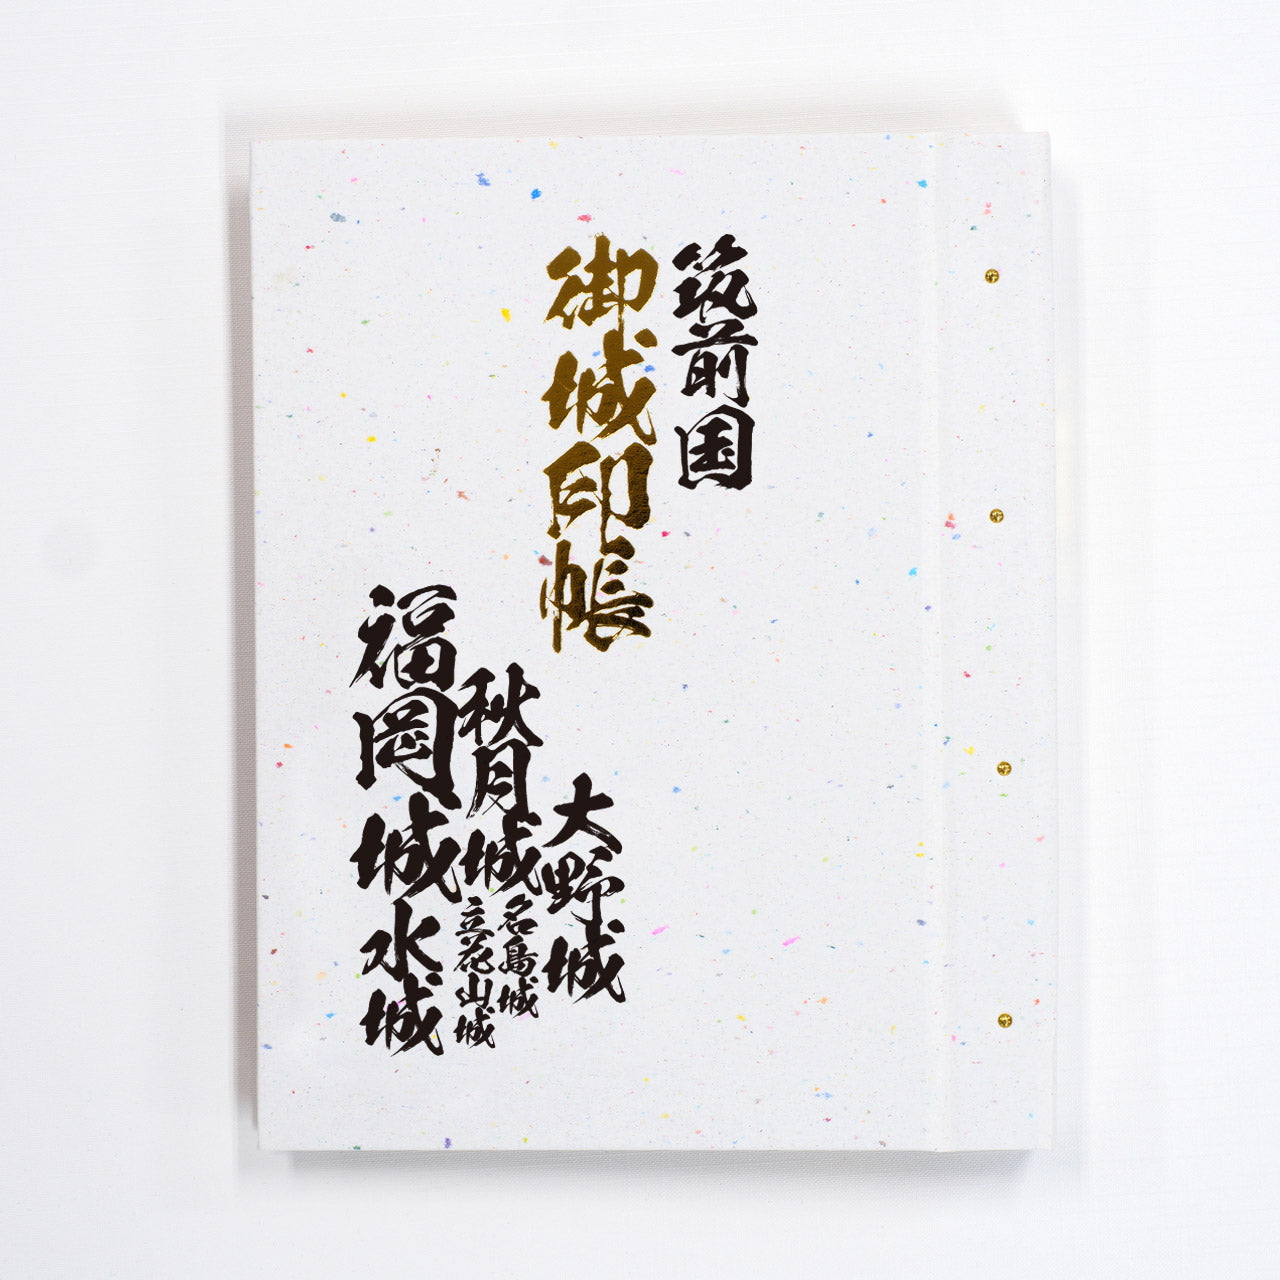 筑前国
御城印帳
大野城
秋月城
名島城
立花山城
福岡城
水城